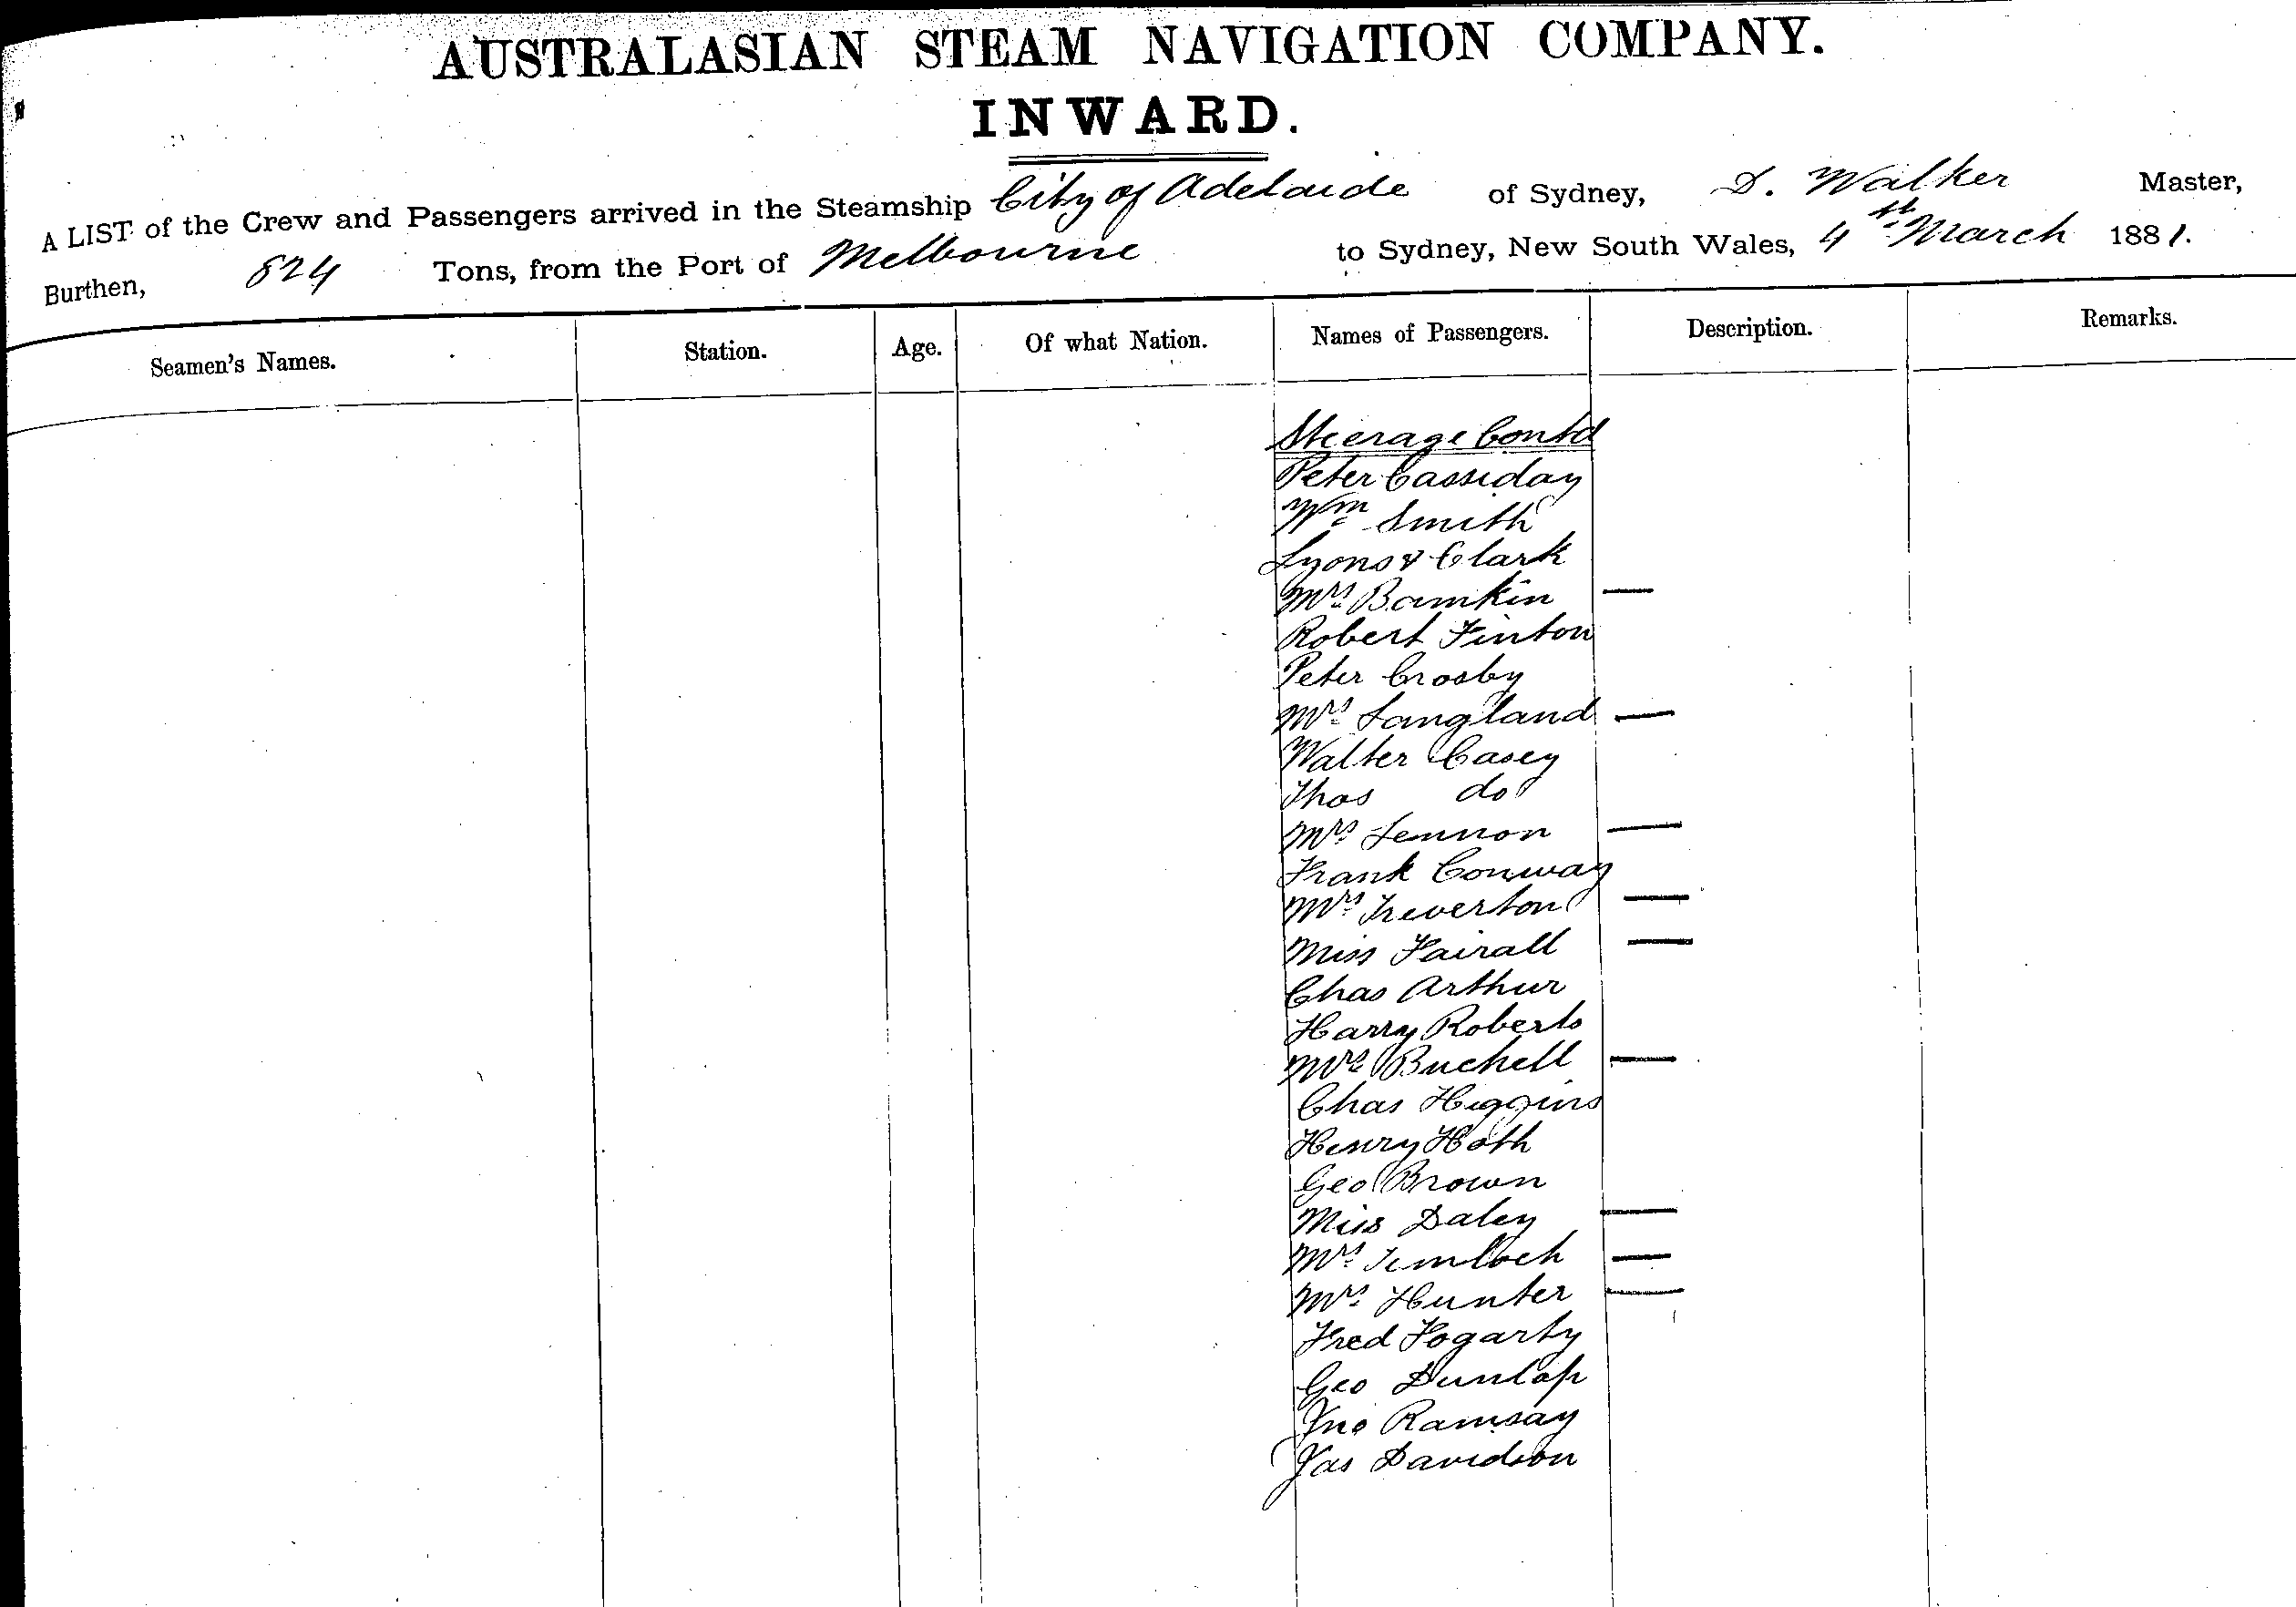 AUSTRALASIAN STEAM NAVIGATION COMPANY.
INWARD.
A LIST of the Crew and Passengers arrived in the Steamship City of Adelaide of Sydney, D. Walker Master,
Burthen, 824 Tons, from the Port of Melbourne to Sydney, New South Wales, 4th March 1881.
Seamen's Names. Station. Age. Of what Nation. Names of Passengers. Description. Remarks.
Steerage Contd
Peter Cassiday
Wm Smith
Lyons & Clark
Mrs Bamkin —
Robert Finton
Peter Crosby
Mrs Langland —
Walter Casey
Thos do
Mrs Lennon —
Frank Conway
Mrs Treverton —
Miss Fairall —
Chas Arthur
Harry Roberts
Mrs Buchell —
Chas Higgins
Henry Hoth
Geo Brown
Miss Daley —
Mrs —
Mrs Hunter —
Fred Fogarty
Geo Dunlop
Jno Ramsay
Jas Davidson